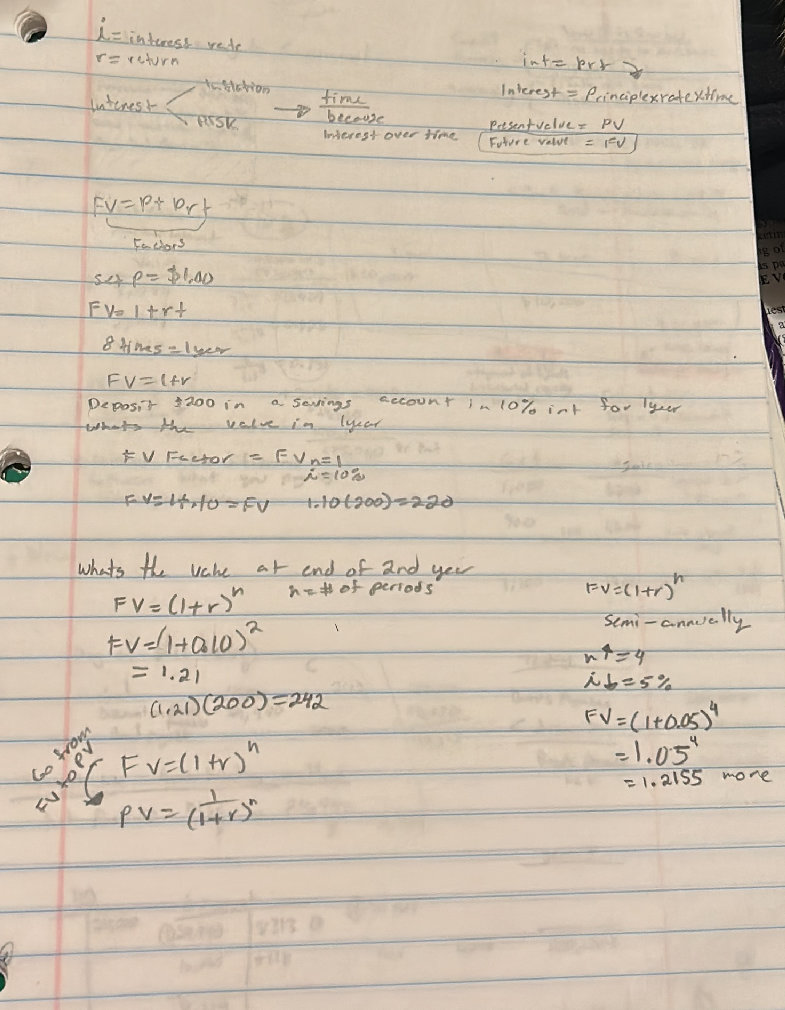 i = interest rate
r = return
Interest < Inflation
RISK
→ time
because
Interest over time
int = prt
Interest = Principlexratextime
Present value = PV
Future value = FV
FV = P + Prt
Factors
set P = $1.00
FV = 1 + rt
8 times = 1 year
FV = 1+r
Deposit $200 in a savings account in 10% int for 1 year
whats the value in 1 year
FV Factor = FV n=1
i=10%
FV = 1+.10 = FV 1.10(200)=220
whats the value at end of 2nd year
FV = (1+r)^n n = # of periods
FV = (1+0.10)^2
= 1.21
(1.21)(200)=242
Go from
FV to PV
FV = (1+r)^n
PV = (1/1+r)^n
FV = (1+r)^n
Semi-annually
n↑ = 4
i↓ = 5%
FV = (1+0.05)^4
= 1.05^4
= 1.2155 more